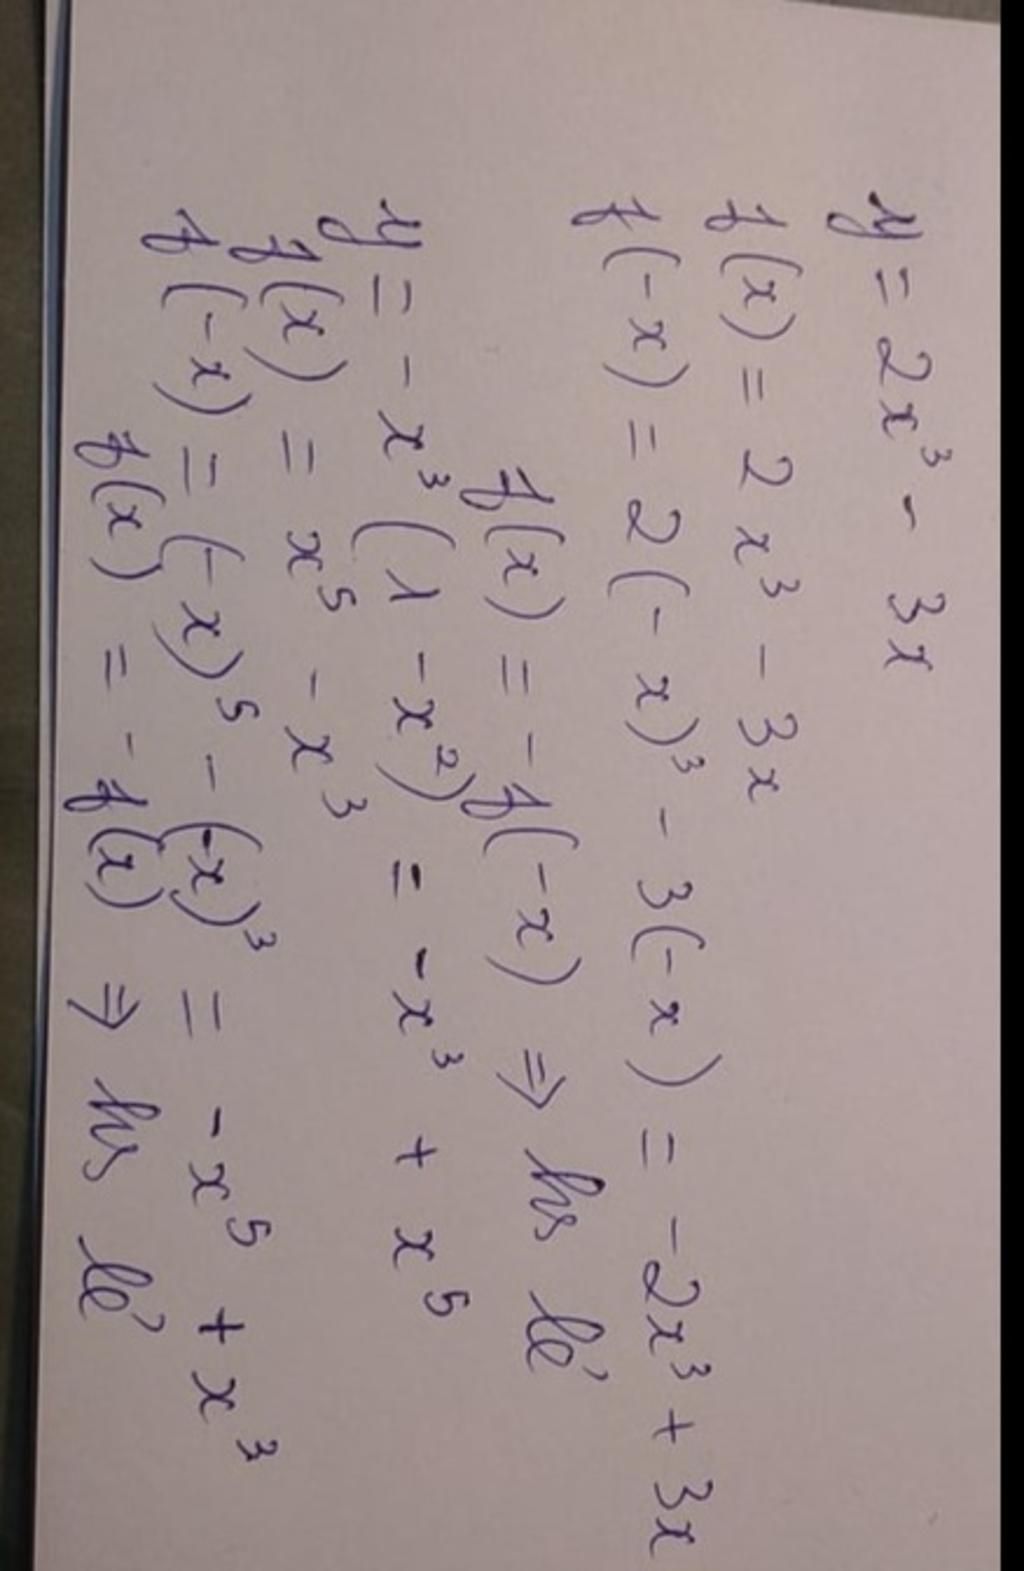 y = 2x³ - 3x
f(x) = 2x³ - 3x
f(-x) = 2(-x)³ - 3(-x) = -2x³ + 3x
f(x) = -f(-x) ⇒ hs lẻ
y = -x³(1 - x²) = -x³ + x⁵
f(x) = x⁵ - x³
f(-x) = (-x)⁵ - (-x)³ = -x⁵ + x³
f(x) = -f(x) ⇒ hs lẻ